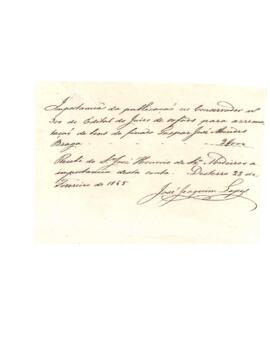 Importancia da publicação no Conservador nº
300 de Edital do Juizo de orfãos para arrema
tação de bens do finado Gaspar José Mendes
Braga - - - - - 2$000
Recebi do Sr José Honorio de Medeiros a
importancia desta conta. Desterro 22 de
Fevereiro de 1865
José Joaquim Lopes